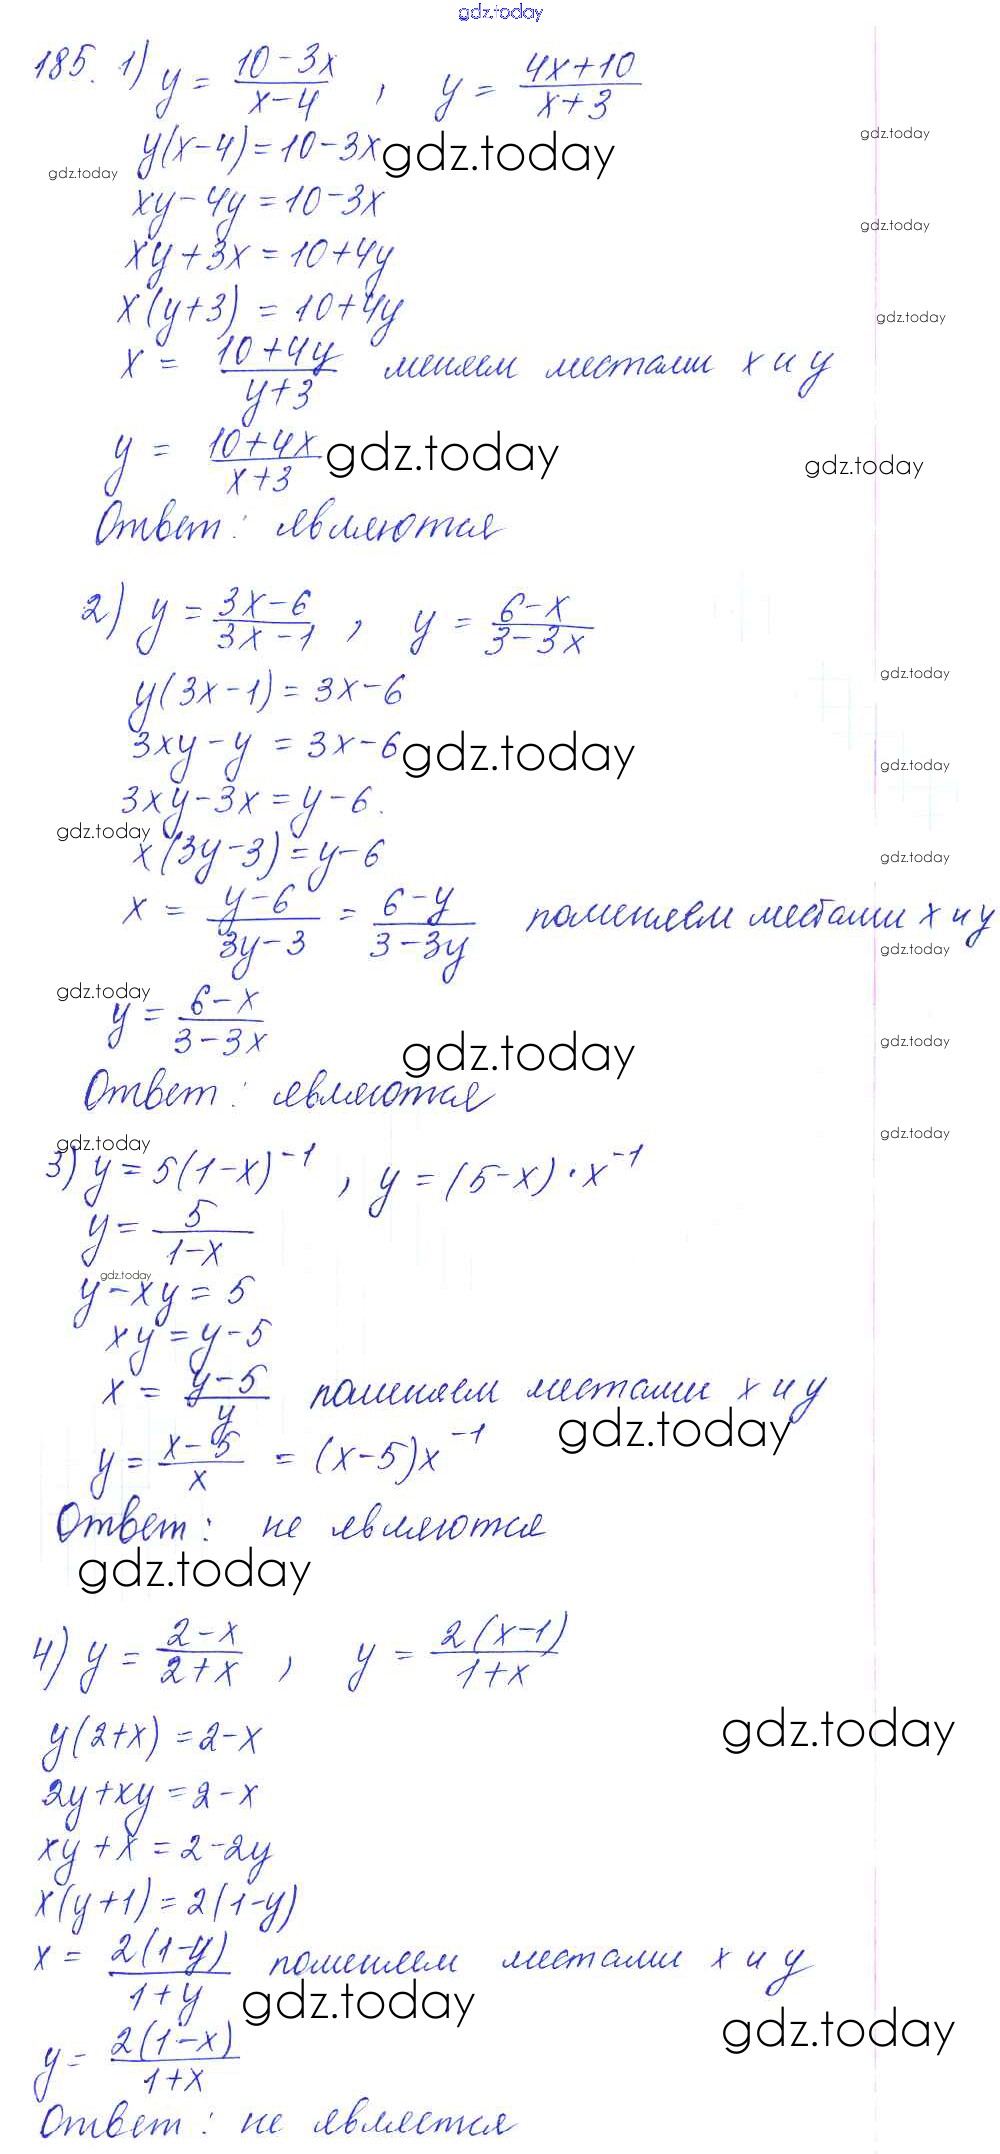 gdz.today
185. 1) y = (10-3x)/(x-4) , y = (4x+10)/(x+3)
gdz.today
y(x-4)=10-3x gdz.today
gdz.today
xy-4y=10-3x
gdz.today
xy+3x=10+4y
x(y+3) = 10+4y
gdz.today
x = (10+4y)/(y+3) меняем местами x и y
y = (10+4x)/(x+3) gdz.today
gdz.today
Ответ: являются
2) y = (3x-6)/(3x-1) , y = (6-x)/(3-3x)
gdz.today
y(3x-1)=3x-6
3xy-y = 3x-6 gdz.today
gdz.today
3xy-3x=y-6.
gdz.today
x(3y-3)=y-6
gdz.today
x = (y-6)/(3y-3) = (6-y)/(3-3y) поменяем местами x и y
gdz.today
gdz.today
y = (6-x)/(3-3x)
gdz.today
gdz.today
Ответ: являются
gdz.today
gdz.today
3) y=5(1-x)⁻¹ , y=(5-x)·x⁻¹
y = 5/(1-x)
gdz.today
y-xy=5
xy=y-5
x = (y-5)/y поменяем местами x и y
gdz.today
y = (x-5)/x = (x-5)x⁻¹
Ответ: не являются
gdz.today
4) y = (2-x)/(2+x) , y = 2(x-1)/(1+x)
gdz.today
y(2+x)=2-x
2y+xy=2-x
xy+x=2-2y
x(y+1)=2(1-y)
x = 2(1-y)/(1+y) поменяем местами x и y
gdz.today
gdz.today
y = 2(1-x)/(1+x)
Ответ: не является